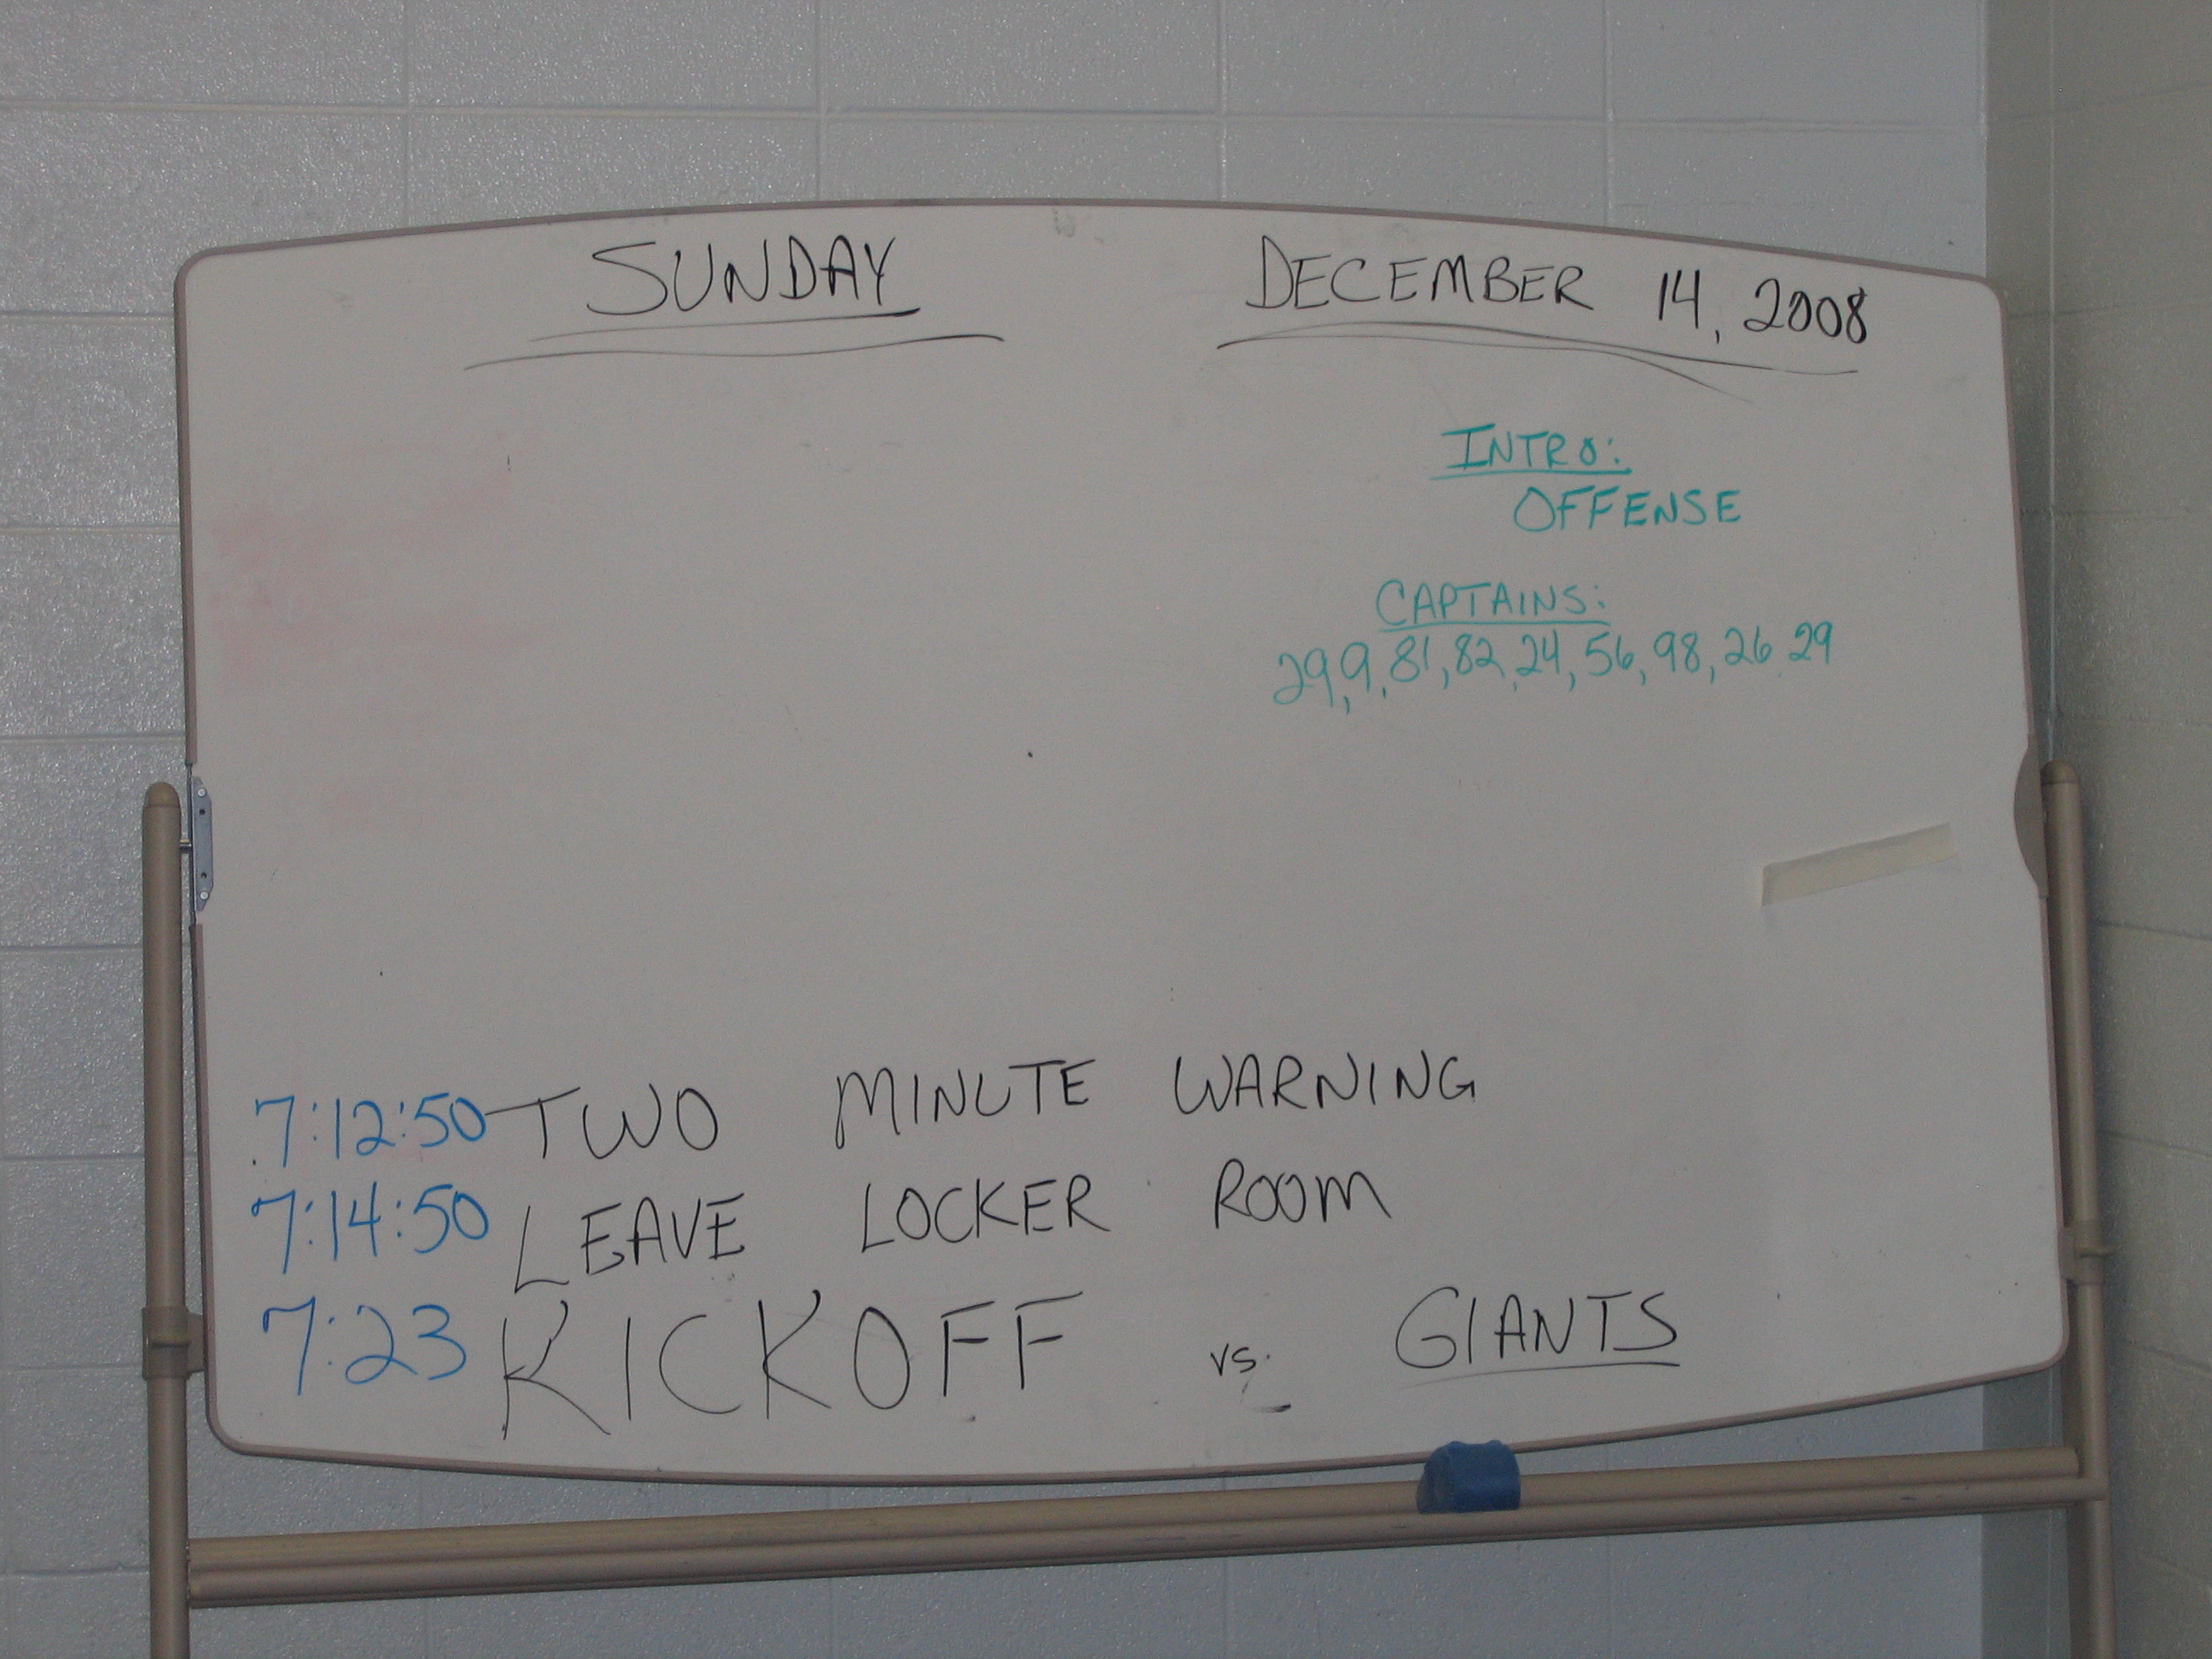 SUNDAY DECEMBER 14, 2008
INTRO:
OFFENSE
CAPTAINS:
29, 9, 81, 82, 24, 56, 98, 26 29
7:12:50 TWO MINUTE WARNING
7:14:50 LEAVE LOCKER ROOM
7:23 KICKOFF vs. GIANTS